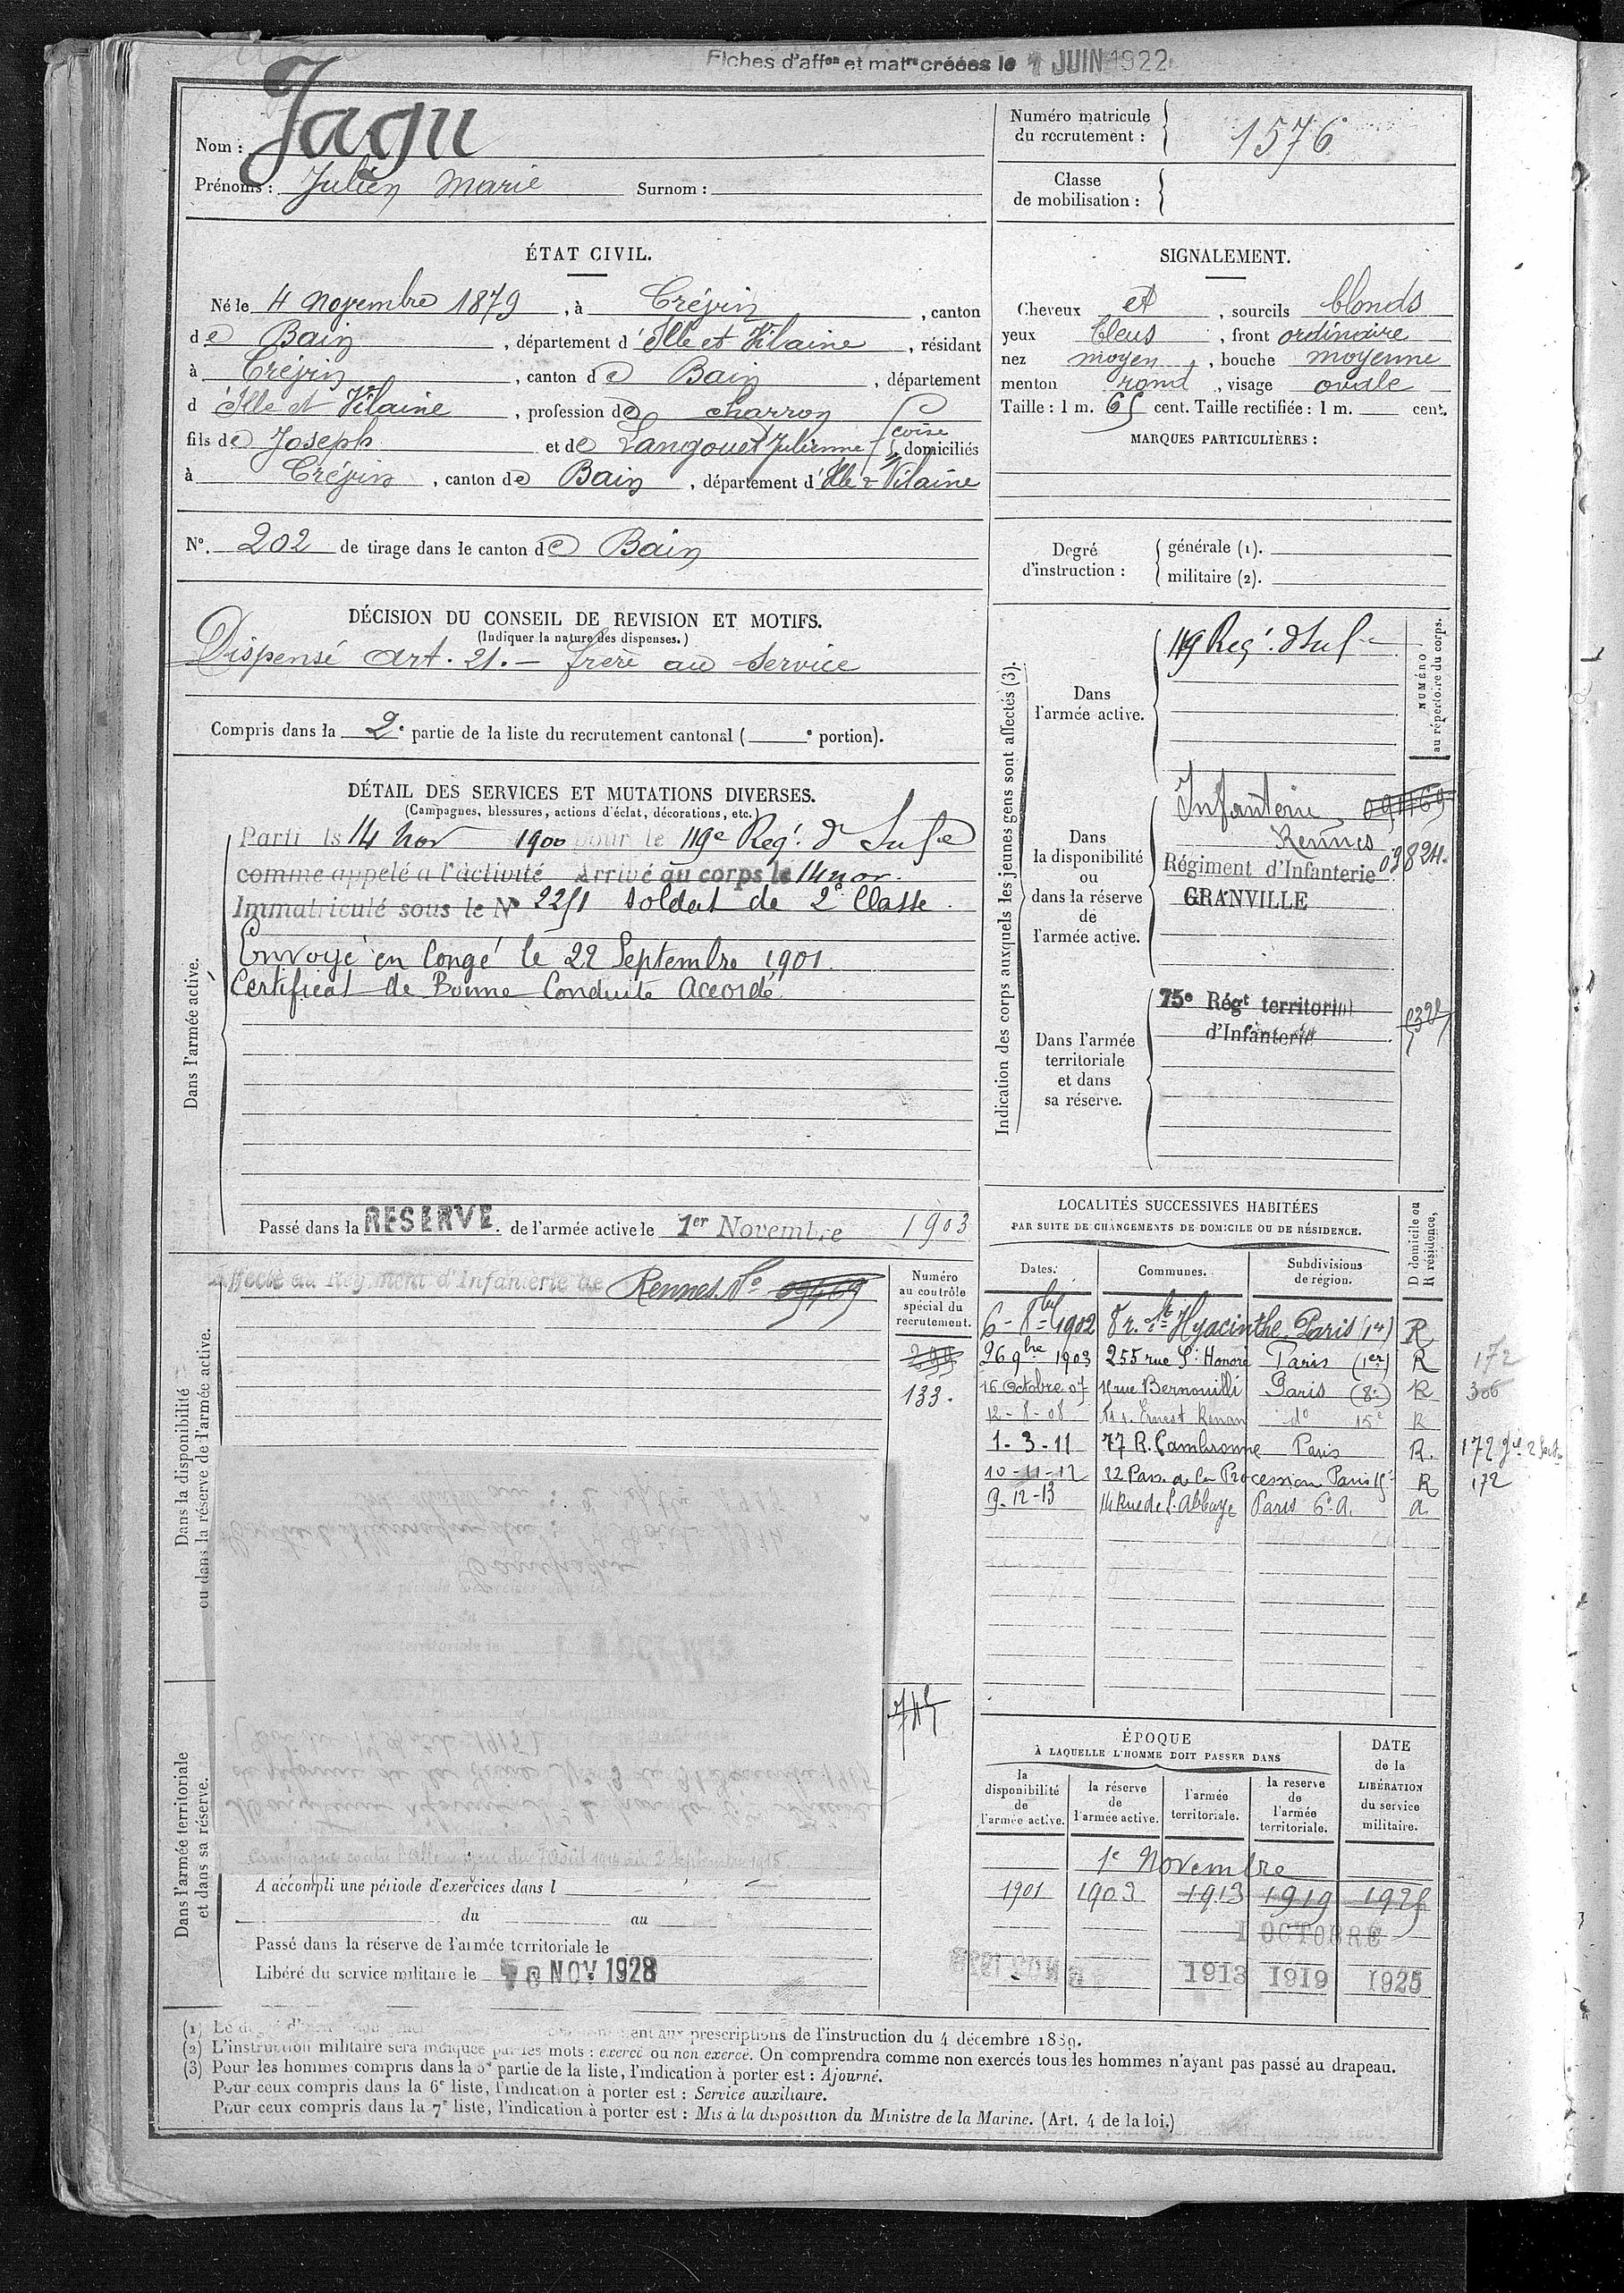 Fiches d'affon et matre créées le 1 JUIN 1922
Nom : Jagu
Prénoms : Julien Marie Surnom :
Numéro matricule du recrutement : 1576
Classe de mobilisation :
ÉTAT CIVIL.
Né le 4 Novembre 1879, à Crévin, canton
de Bain, département d'Ille et Vilaine, résidant
à Crévin, canton de Bain, département
d'Ille et Vilaine, profession de charron
fils de Joseph et de Langouet Julienne domiciliés
à Crévin, canton de Bain, département d'Ille & Vilaine
No. 202 de tirage dans le canton de Bain
SIGNALEMENT.
Cheveux et, sourcils blonds
yeux bleus, front ordinaire
nez moyen, bouche moyenne
menton rond, visage ovale
Taille : 1 m. 65 cent. Taille rectifiée : 1 m. cent.
MARQUES PARTICULIÈRES :
Degré d'instruction :
générale (1).
militaire (2).
DÉCISION DU CONSEIL DE REVISION ET MOTIFS.
(Indiquer la nature des dispenses.)
Dispensé art. 21. — frère au service
Compris dans la 2e partie de la liste du recrutement cantonal ( e portion).
DÉTAIL DES SERVICES ET MUTATIONS DIVERSES.
(Campagnes, blessures, actions d'éclat, décorations, etc.)
Dans l'armée active.
Parti le 14 Nov 1900 pour le 119e Reg. d'Infie
comme appelé à l'activité Arrivé au corps le 14 nov.
Immatriculé sous le No 2251 soldat de 2e Classe.
Envoyé en Congé le 22 Septembre 1901.
Certificat de Bonne Conduite Accordé
Passé dans la RESERVE. de l'armée active le 1er Novembre 1903
Indication des corps auxquels les jeunes gens sont affectés (3).
NUMÉRO au répertoire du corps.
Dans l'armée active.
119 Reg. d'Infie
Dans la disponibilité ou dans la réserve de l'armée active.
Infanterie
Rennes
Régiment d'Infanterie 03824.
GRANVILLE
Dans l'armée territoriale et dans sa réserve.
75e Régt territorial
d'Infanterie
Dans la disponibilité ou dans la réserve de l'armée active.
Affecté au Régiment d'Infanterie de Rennes. No 09469
Numéro au contrôle spécial du recrutement.
133.
LOCALITÉS SUCCESSIVES HABITÉES
PAR SUITE DE CHANGEMENTS DE DOMICILE OU DE RÉSIDENCE.
Dates. Communes. Subdivisions de région. D domicile ou R résidence.
6 - 8bre 1902 8 r. St Hyacinthe Paris (1er) R
26 9bre 1903 255 rue St Honoré Paris (1er) R 172
16 Octobre 07 11 rue Bernouilli Paris (8e) R 306
12 - 8 - 08 r. Ernest Renan do 15e R
1 - 3 - 11 77 R. Cambronne Paris R. 172
10 - 11 - 12 22 Pass. de la Procession Paris 15e R 172
9 - 12 - 13 14 Rue de l'Abbaye Paris 6e A. a.
Dans l'armée territoriale et dans sa réserve.
Campagne contre l'Allemagne du 7 Août 1914 au 2 Septembre 1915.
A accompli une période d'exercices dans l
du au
Passé dans la réserve de l'armée territoriale le
Libéré du service militaire le 10 NOV 1928
ÉPOQUE
À LAQUELLE L'HOMME DOIT PASSER DANS
la disponibilité de l'armée active.
la réserve de l'armée active.
l'armée territoriale.
la réserve de l'armée territoriale.
DATE de la LIBÉRATION du service militaire.
1e Novembre
1901 1903 1913 1919 1925
1 OCTOBRE
1913 1919 1925
(2) L'instruction militaire sera indiquée par les mots : exercé ou non exercé. On comprendra comme non exercés tous les hommes n'ayant pas passé au drapeau.
(3) Pour les hommes compris dans la 5e partie de la liste, l'indication à porter est : Ajourné.
Pour ceux compris dans la 6e liste, l'indication à porter est : Service auxiliaire.
Pour ceux compris dans la 7e liste, l'indication à porter est : Mis à la disposition du Ministre de la Marine. (Art. 4 de la loi.)